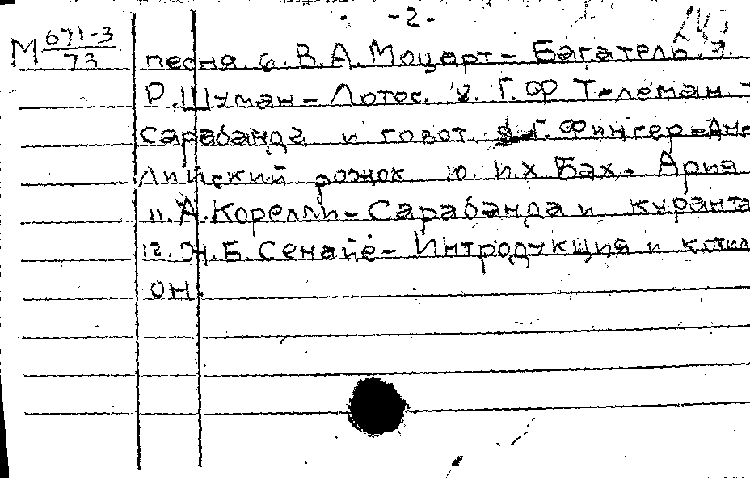 -2-
М 671-3
73
песня 6. В.А. Моцарт - Багатель 7.
Р. Шуман - Лотос. 8. Г.Ф Телеман -
Сарабанда и говот 9. Г. Фингер - Анг
лийский рожок 10. И.Х Бах - Ария
11. А. Корелли - Сарабанда и куранта
12. Ж.Б. Сенайе - Интродукция и котил
он.